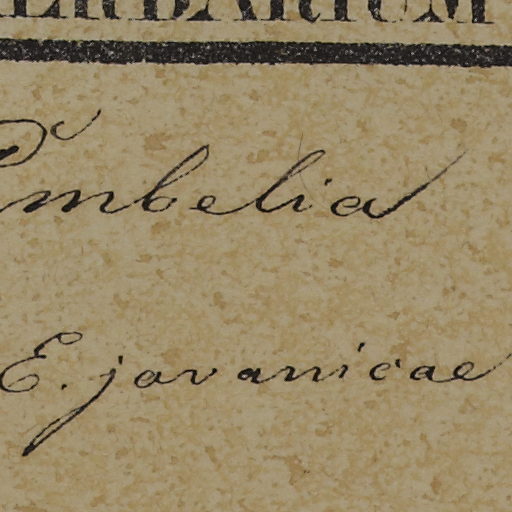 HERBARIUM
Embelia
E. javanicae